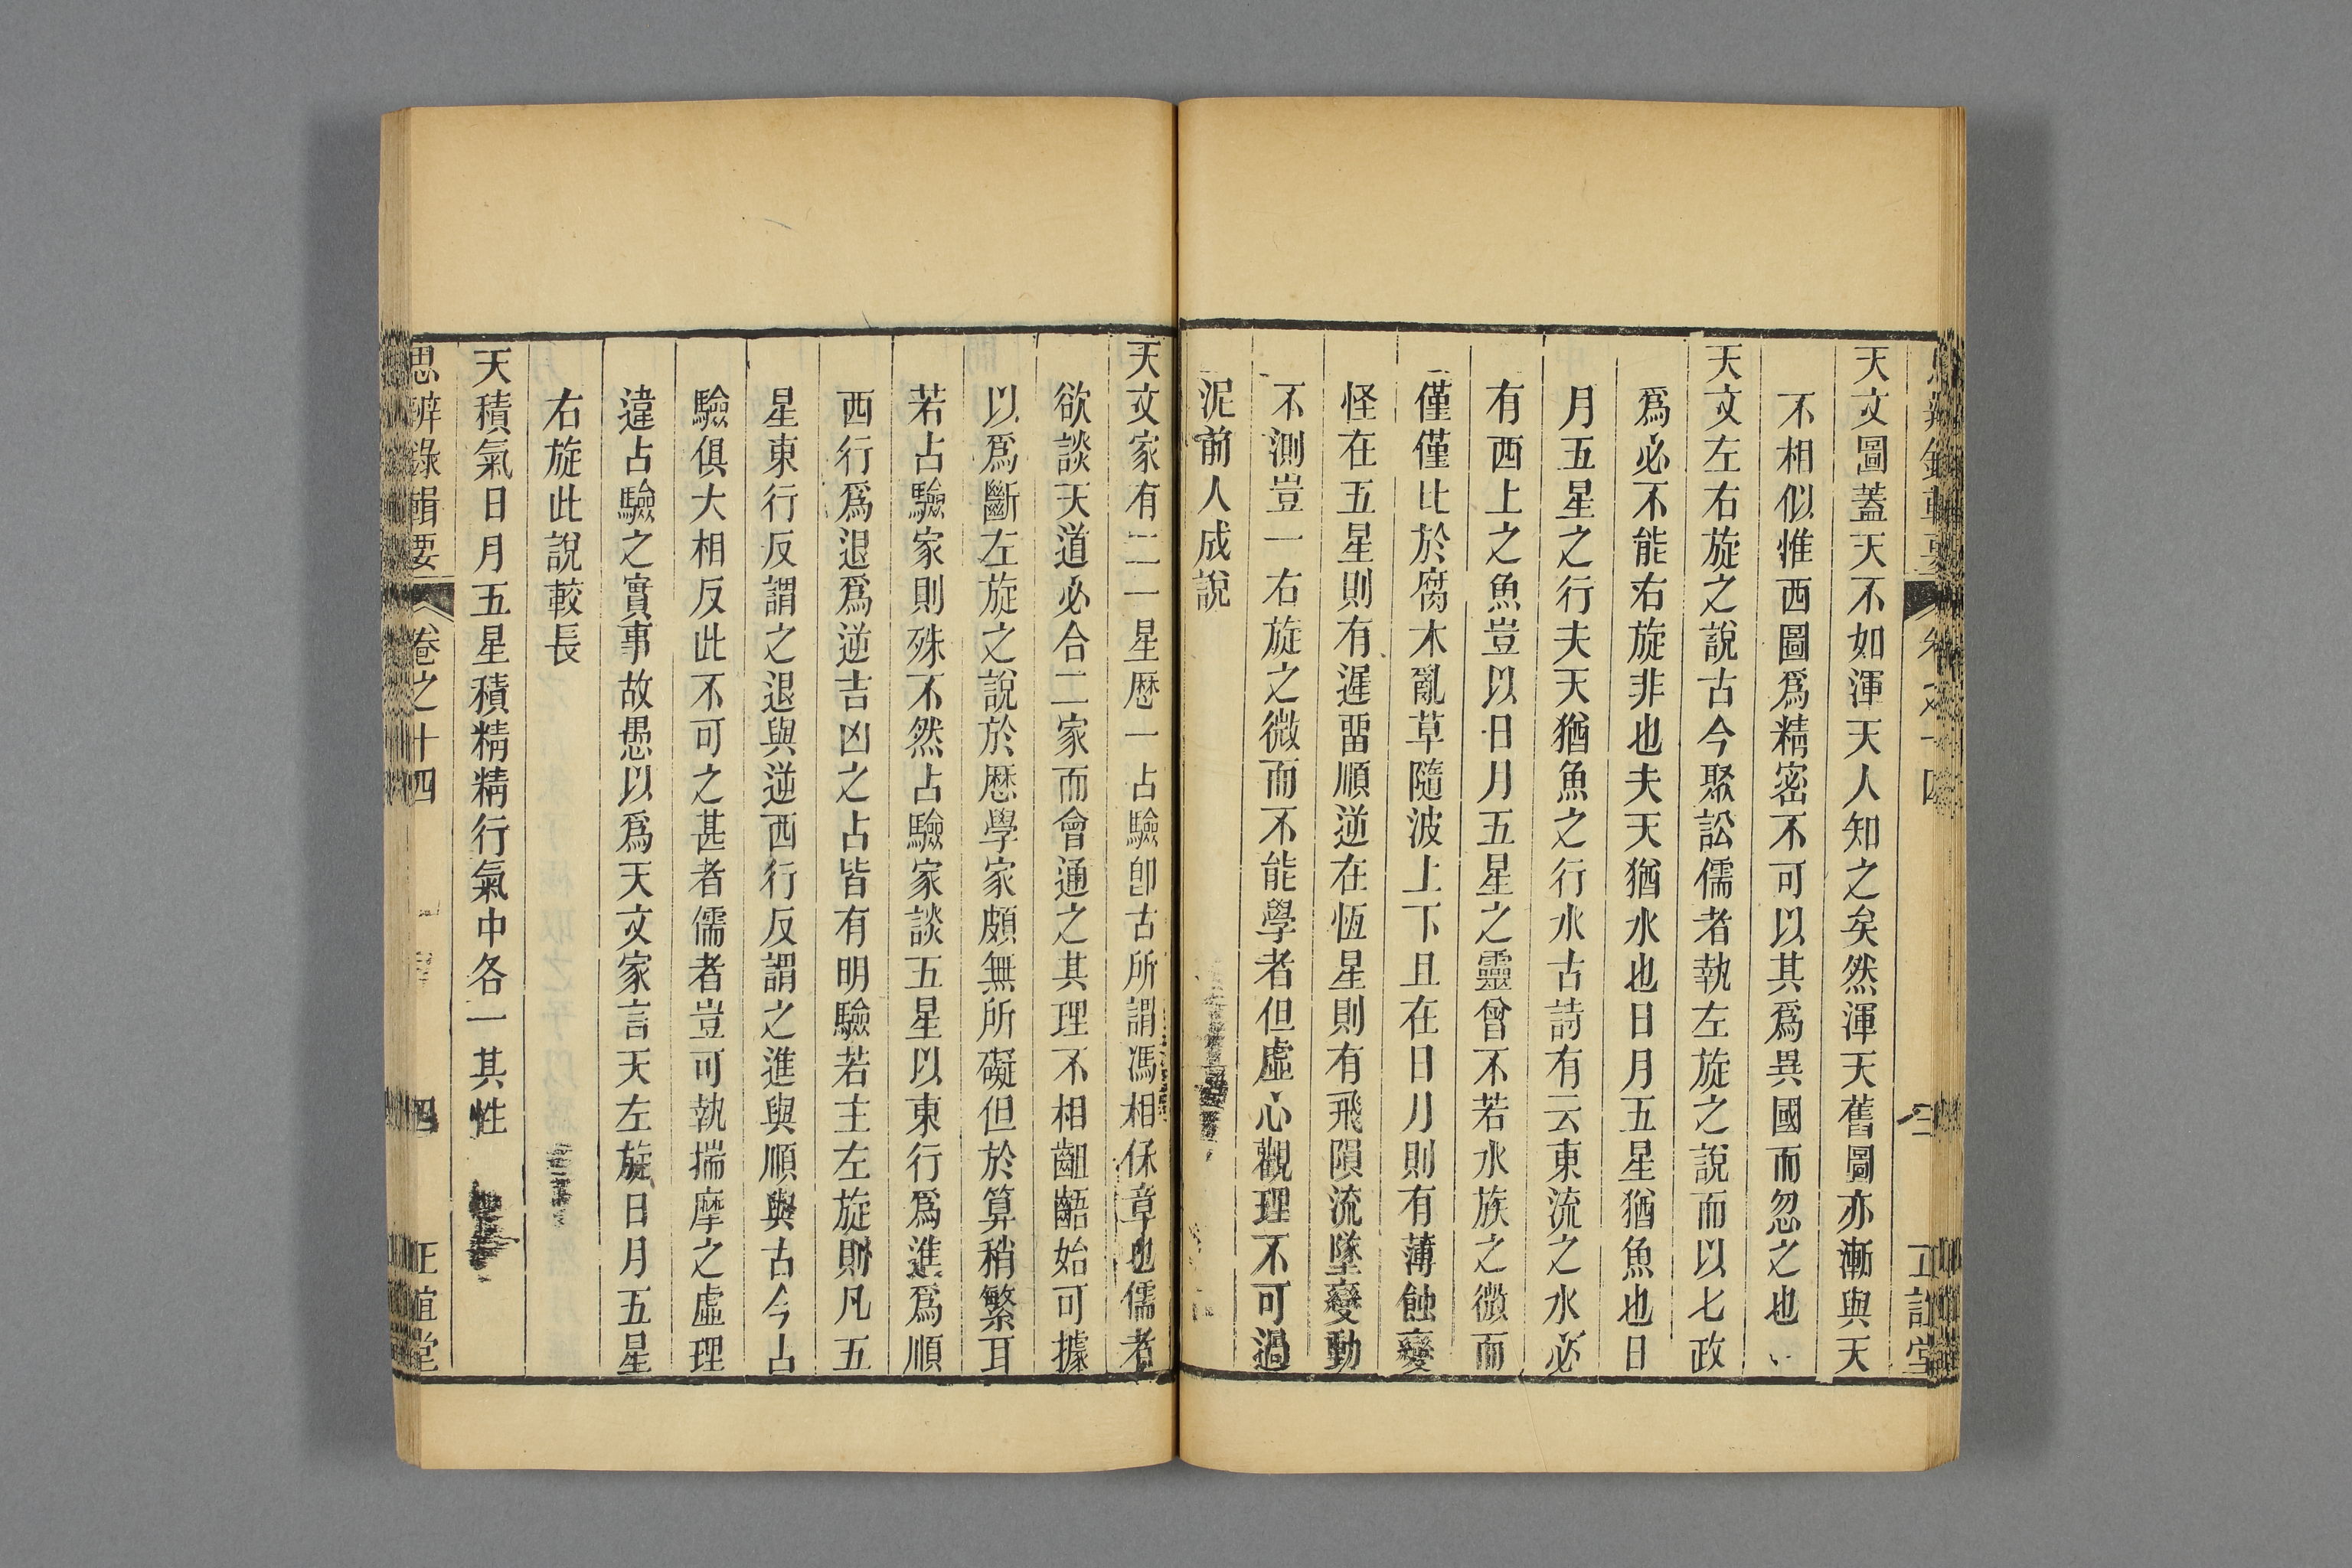 天文圖蓋天不如渾天人知之矣然渾天舊圖亦漸與天
不相似惟西圖爲精密不可以其爲異國而忽之也
天文左右旋之說古今聚訟儒者執左旋之說而以七政
爲必不能右旋非也夫天猶水也日月五星猶魚也日
月五星之行夫天猶魚之行水古詩有云東流之水必
有西上之魚豈以日月五星之靈曾不若水族之微而
僅僅比於腐木亂草隨波上下且在日月則有薄蝕變
怪在五星則有遲畱順逆在恆星則有飛隕流墜變動
不測豈一右旋之微而不能學者但虛心觀理不可過
泥前人成說
天文家有二一星歷一占驗卽古所謂馮相保章也儒者
欲談天道必合二家而會通之其理不相齟齬始可據
以爲斷左旋之說於歷學家頗無所礙但於算稍繁耳
若占驗家則殊不然占驗家談五星以東行爲進爲順
西行爲退爲逆吉凶之占皆有明驗若主左旋則凡五
星東行反謂之退與逆西行反謂之進與順與古今占
驗俱大相反此不可之甚者儒者豈可執揣摩之虛理
違占驗之實事故愚以爲天文家言天左旋日月五星
右旋此說較長
天積氣日月五星積精精行氣中各一其性
思辨錄輯要 卷之十四 四 正誼堂